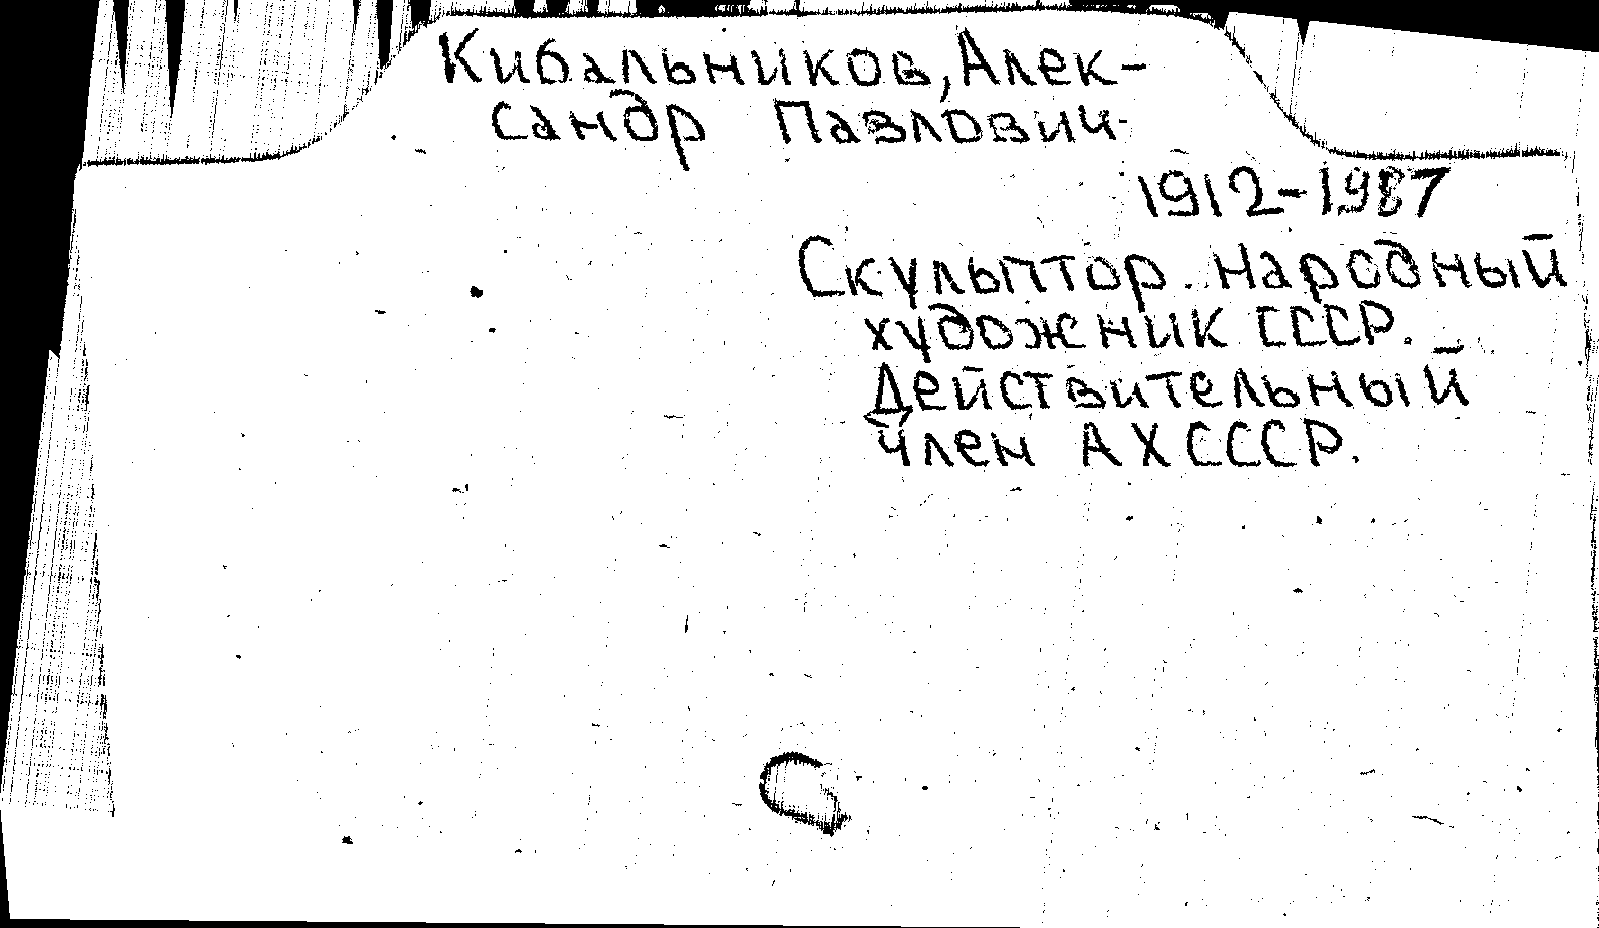 Кибальников, Алек-
сандр Павлович
1912-1987
Скульптор. Народный
художник СССР.
Действительный
член АХ СССР.